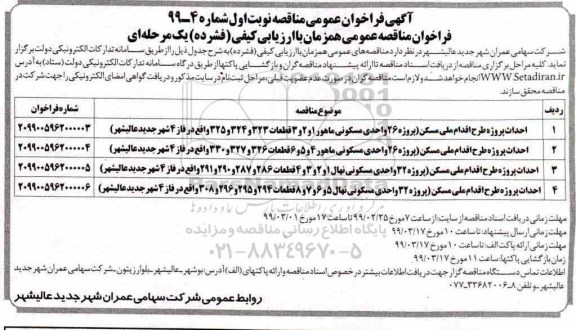 آگهی فراخوان عمومی مناقصه نوبت اول شماره ۴-۹۹
فراخوان مناقصه عمومی همزمان با ارزیابی کیفی (فشرده) یک مرحله‌ای
شرکت سهامی عمران شهر جدید عالیشهر در نظر دارد مناقصه‌های عمومی همزمان با ارزیابی کیفی (فشرده) به شرح جدول ذیل را از طریق سامانه تدارکات الکترونیکی دولت برگزار
نماید. کلیه مراحل برگزاری مناقصه از دریافت اسناد مناقصه تا ارائه پیشنهاد مناقصه گران و بازگشایی پاکتها از طریق درگاه سامانه تدارکات الکترونیکی دولت (ستاد) به آدرس
WWW.Setadiran.ir انجام خواهد شد و لازم است مناقصه گران در صورت عدم عضویت قبلی، مراحل ثبت نام در سایت مذکور و دریافت گواهی امضای الکترونیکی را جهت شرکت در
مناقصه محقق سازند.
ردیف موضوع مناقصه شماره فراخوان
۱ احداث پروژه طرح اقدام ملی مسکن (پروژه ۲۶ واحدی مسکونی ماهور ۱ و ۲ و ۳ قطعات ۳۲۳ و ۳۲۴ و ۳۲۵ واقع در فاز ۴ شهر جدید عالیشهر) ۲۰۹۹۰۰۵۹۶۲۰۰۰۰۰۳
۲ احداث پروژه طرح اقدام ملی مسکن (پروژه ۲۶ واحدی مسکونی ماهور ۴ و ۵ و ۶ قطعات ۳۲۶ و ۳۲۷ و ۳۳۰ واقع در فاز ۴ شهر جدید عالیشهر) ۲۰۹۹۰۰۵۹۶۲۰۰۰۰۰۴
۳ احداث پروژه طرح اقدام ملی مسکن (پروژه ۳۲ واحدی مسکونی نهال ۱ و ۲ و ۳ و ۴ قطعات ۲۸۶ و ۲۸۷ و ۲۹۰ و ۲۹۱ واقع در فاز ۴ شهر جدید عالیشهر) ۲۰۹۹۰۰۵۹۶۲۰۰۰۰۰۵
۴ احداث پروژه طرح اقدام ملی مسکن (پروژه ۳۲ واحدی مسکونی نهال ۵ و ۶ و ۷ و ۸ قطعات ۲۹۴ و ۲۹۵ و ۲۹۶ و ۳۰۸ واقع در فاز ۴ شهر جدید عالیشهر) ۲۰۹۹۰۰۵۹۶۲۰۰۰۰۰۶
مهلت زمانی دریافت اسناد مناقصه از سایت: از ساعت ۷ مورخ ۹۹/۰۲/۲۵ تا ساعت ۱۷ مورخ ۹۹/۰۳/۰۱
مهلت زمانی ارسال پیشنهاد: تا ساعت ۱۰ مورخ ۹۹/۰۳/۱۷
مهلت زمانی ارائه پاکت الف: تا ساعت ۱۰ مورخ ۹۹/۰۳/۱۷
زمان بازگشایی پاکتها: ساعت ۱۱ مورخ ۹۹/۰۳/۱۷
اطلاعات تماس دستگاه مناقصه گزار جهت دریافت اطلاعات بیشتر در خصوص اسناد مناقصه و ارائه پاکتهای (الف): آدرس بوشهر ـ عالیشهر ـ بلوار زیتون ـ شرکت سهامی عمران شهر جدید
عالیشهر ـ تلفن ۸ـ۳۳۶۸۲۰۰۶ـ۰۷۷
روابط عمومی شرکت سهامی عمران شهر جدید عالیشهر
پایگاه اطلاع رسانی مناقصه و مزایده
۰۲۱-۸۸۳۴۹۶۷۰-۵